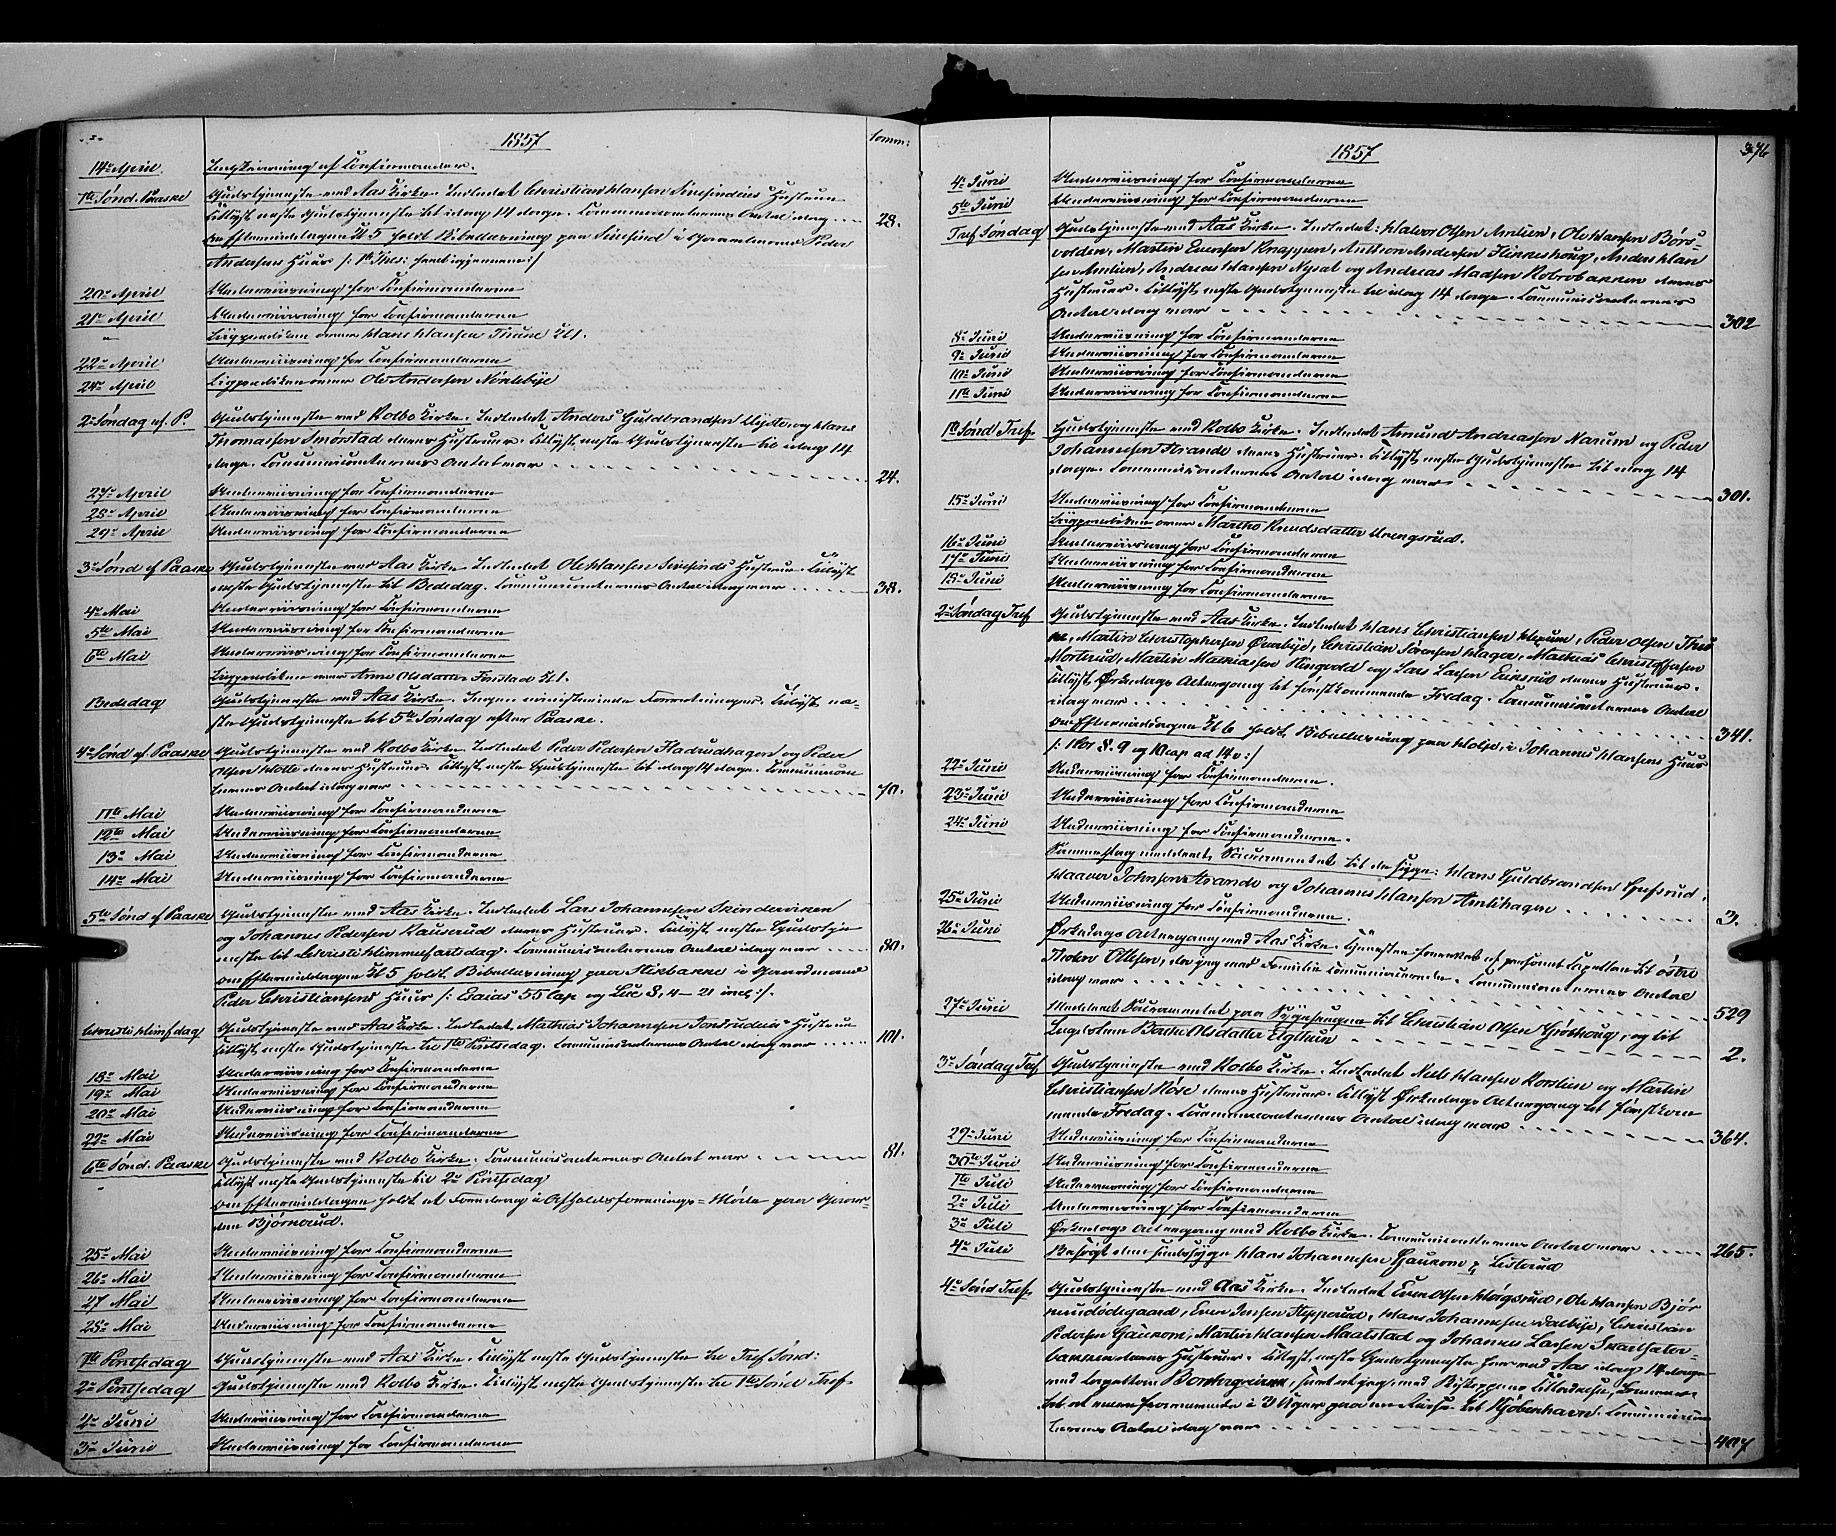 1857
Comm:
14de April Indskrivning af Confirmander.
1ste Sønd. Paaske Gudstjeneste ved Aas Kirke. Indledet Christian Hansen Hustrue
Tillyst næste Gudstjeneste til idag 14 dage. Communicanternes Antal idag 28.
om Eftermiddagen Kl 5 holdt Bibellæsning paa i Gaardmand Peder
Andersens Huus
20de April Underviisning for Confirmanderne
21de April Underviisning for Confirmanderne
" Liigprædiken over Hans Hansen Thune
22de April Underviisning for Confirmanderne
24de April Liigprædiken over Ole Andersen Nørdebye
2den Søndag ef. P. Gudstjeneste ved Kolbo Kirke. Indledet Anders Guldbrandsen og Hans
Thomassen Smørstad deres Hustruer. Tillyst næste Gudstjeneste til idag 14
dage. Communicanternes Antal var 24.
27de April Underviisning for Confirmanderne
28de April Underviisning for Confirmanderne
29de April Underviisning for Confirmanderne
3die Sønd ef Paaske Gudstjeneste ved Aas Kirke. Indledet Ole Hansen Hustrue. Tillyst
næste Gudstjeneste til Bededag. Communicanternes Antal idag var 38.
4de Mai Underviisning for Confirmanderne
5te Mai Underviisning for Confirmanderne
6te Mai Underviisning for Confirmanderne
Liigprædiken over Anne Olsdatter
Bededag Gudstjeneste ved Aas Kirke. Ingen ministerielle Forretninger. Tillyst næ-
ste Gudstjeneste til 5te Søndag efter Paaske.
4de Sønd ef Paaske Gudstjeneste ved Kolbo Kirke. Indledet Peder Pedersen og Peder
Olsen deres Hustruer. Tillyst næste Gudstjeneste til idag 14 dage. Communican
ternes Antal idag var 70.
11te Mai Underviisning for Confirmanderne
12te Mai Underviisning for Confirmanderne
13de Mai Underviisning for Confirmanderne
14de Mai Underviisning for Confirmanderne
5te Sønd ef Paaske Gudstjeneste ved Aas Kirke. Indledet Lars Johannesen Skinderviken
og Johannes Pedersen deres Hustruer. Tillyst næste Gudstje
neste til Christi Himmelfartsdag. Communicanternes Antal idag var 80.
om Eftermiddagen Kl 5 holdt Bibellæsning paa i Gaardmand
Peder Christiansens Huus /: Esaias 55 Cap og Luc 8, 4-21 incl:/.
Christi Himlfdag Gudstjeneste ved Aas Kirke. Indledet Mathias Johannesen Hustrue
Tillyst næste Gudstjeneste til 1ste Pintsedag. Communicanternes Antal idag var 101.
18de Mai Underviisning for Confirmanderne
19de Mai Underviisning for Confirmanderne
20de Mai Underviisning for Confirmanderne
22de Mai Underviisning for Confirmanderne
6te Sønd. Paaske Gudstjeneste ved Kolbo Kirke. Communicanternes Antal var 81.
Tillyst næste Gudstjeneste til 2den Pintsedag
" om Eftermiddagen holdt et Foredrag i Afholdsforenings-Møde paa Gaar-
den Bjørnerud.
25de Mai Underviisning for Confirmanderne
26de Mai Underviisning for Confirmanderne
27 Mai Underviisning for Confirmanderne
28de Mai Underviisning for Confirmanderne
1ste Pintsedag Gudstjeneste ved Aas Kirke. Tillyst næste Gudstjeneste til Tref Sønd:
2den Pintsedag Gudstjeneste ved Kolbo Kirke. Tillyst næste Gudstjeneste til 1ste Sønd Tref
2den Juni Underviisning for Confirmanderne
3die Juni Underviisning for Confirmanderne
1857
376
4de Juni Underviisning for Confirmanderne
5te Juni Underviisning for Confirmanderne
Tref Søndag Gudstjeneste ved Aas Kirke. Indledet: Halvor Olsen Amlien, Ole Hansen Børs-
volden, Martin Evensen Knappen, Anthon Andersen Hinneshoug, Anders Han
sen Amlien, Andreas Hansen Nysæt og Andreas Madsen Kolbobakken deres
Hustruer. Tillyst næste Gudstjeneste til idag 14 dage. Communicanternes
Antal idag var 302
8de Juni Underviisning for Confirmanderne
9de Juni Underviisning for Confirmanderne
10de Juni Underviisning for Confirmanderne
11te Juni Underviisning for Confirmanderne
1ste Sønd Tref. Gudstjeneste ved Kolbo Kirke. Indledet Amund Andreassen Narum og Peder
Johannesen Strande deres Hustruer. Tillyst næste Gudstjeneste til idag 14
dage. Communicanternes Antal idag var 301.
15de Juni Underviisning for Confirmanderne
Liigprædiken over Marthe Knudsdatter Vrengsrud.
16de Juni Underviisning for Confirmanderne
17de Juni Underviisning for Confirmanderne
18de Juni Underviisning for Confirmanderne
2den Søndag Tref Gudstjeneste ved Aas Kirke. Indledet Hans Christiansen, Peder Olsen Thu
ne, Martin Christophersen Øverbye, Christian Sørensen Hager, Mathias Christophersen
Morterud, Martin Mathiassen Ringvold og Lars Larsen Eriksrud deres Hustruer.
Tillyst Ørkedags Altergang til førstkommende Fredag. Communicanternes Antal
idag var 341.
om Eftermiddagen Kl 6 holdt Bibellæsning paa i Johannes Hansens Huus
/: 1 Cor 8. 9 og 10 Cap ad 14 v:/
22de Juni Underviisning for Confirmanderne.
23de Juni Underviisning for Confirmanderne
24de Juni Underviisning for Confirmanderne.
Samme dag meddeelt Sacramentet til de syge: Hans Guldbrandsen
Haaver Johnsen Strande og Johannes Hansen Amlihagen 3.
25de Juni Underviisning for Confirmanderne.
26de Juni Ørkedags Altergang ved Aas Kirke. Tjenesten forrettet af personel Capellan til østre
Thoten, da jeg med Familie communicerede. Communicanternes Antal
idag var 529
27de Juni Meddeelt Sacramentet paa Sygesengen til Christian Olsen Gjøshoug, og til
Berthe Olsdatter 2.
3die Søndag Tref Gudstjeneste ved Kolbo Kirke. Indledet Niels Hansen Korslien og Martin
Christiansen Røse deres Hustruer. Tillyst Ørkedags Altergang til førstkom
mende Fredag. Communicanternes Antal idag var 364.
29de Juni Underviisning for Confirmanderne
30te Juni Underviisning for Confirmanderne
1ste Juli Underviisning for Confirmanderne
2den Juli Underviisning for Confirmanderne
3die Juli Ørkedags Altergang ved Kolbo Kirke. Communicanternes Antal var 265.
4de Juli Besøgt den sindssyge Hans Johannesen
4de Sønd Tref. Gudstjeneste ved Aas Kirke. Indledet Even Olsen, Ole Hansen Bjør
nerudødegaard, Even Jensen, Hans Johannesen Dalbye, Christian
Pedersen, Martin Hansen og Johannes Larsen
bakken deres Hustruer. Tillyst næste Gudstjeneste her ved Aas idag 14 dage
ved Capellan, samt at jeg, med Biskoppens Tilladelse, kommer
til at være fraværende i 3 Uger paa en Reise til Kjøbenhavn. Communican
ternes Antal idag var 407